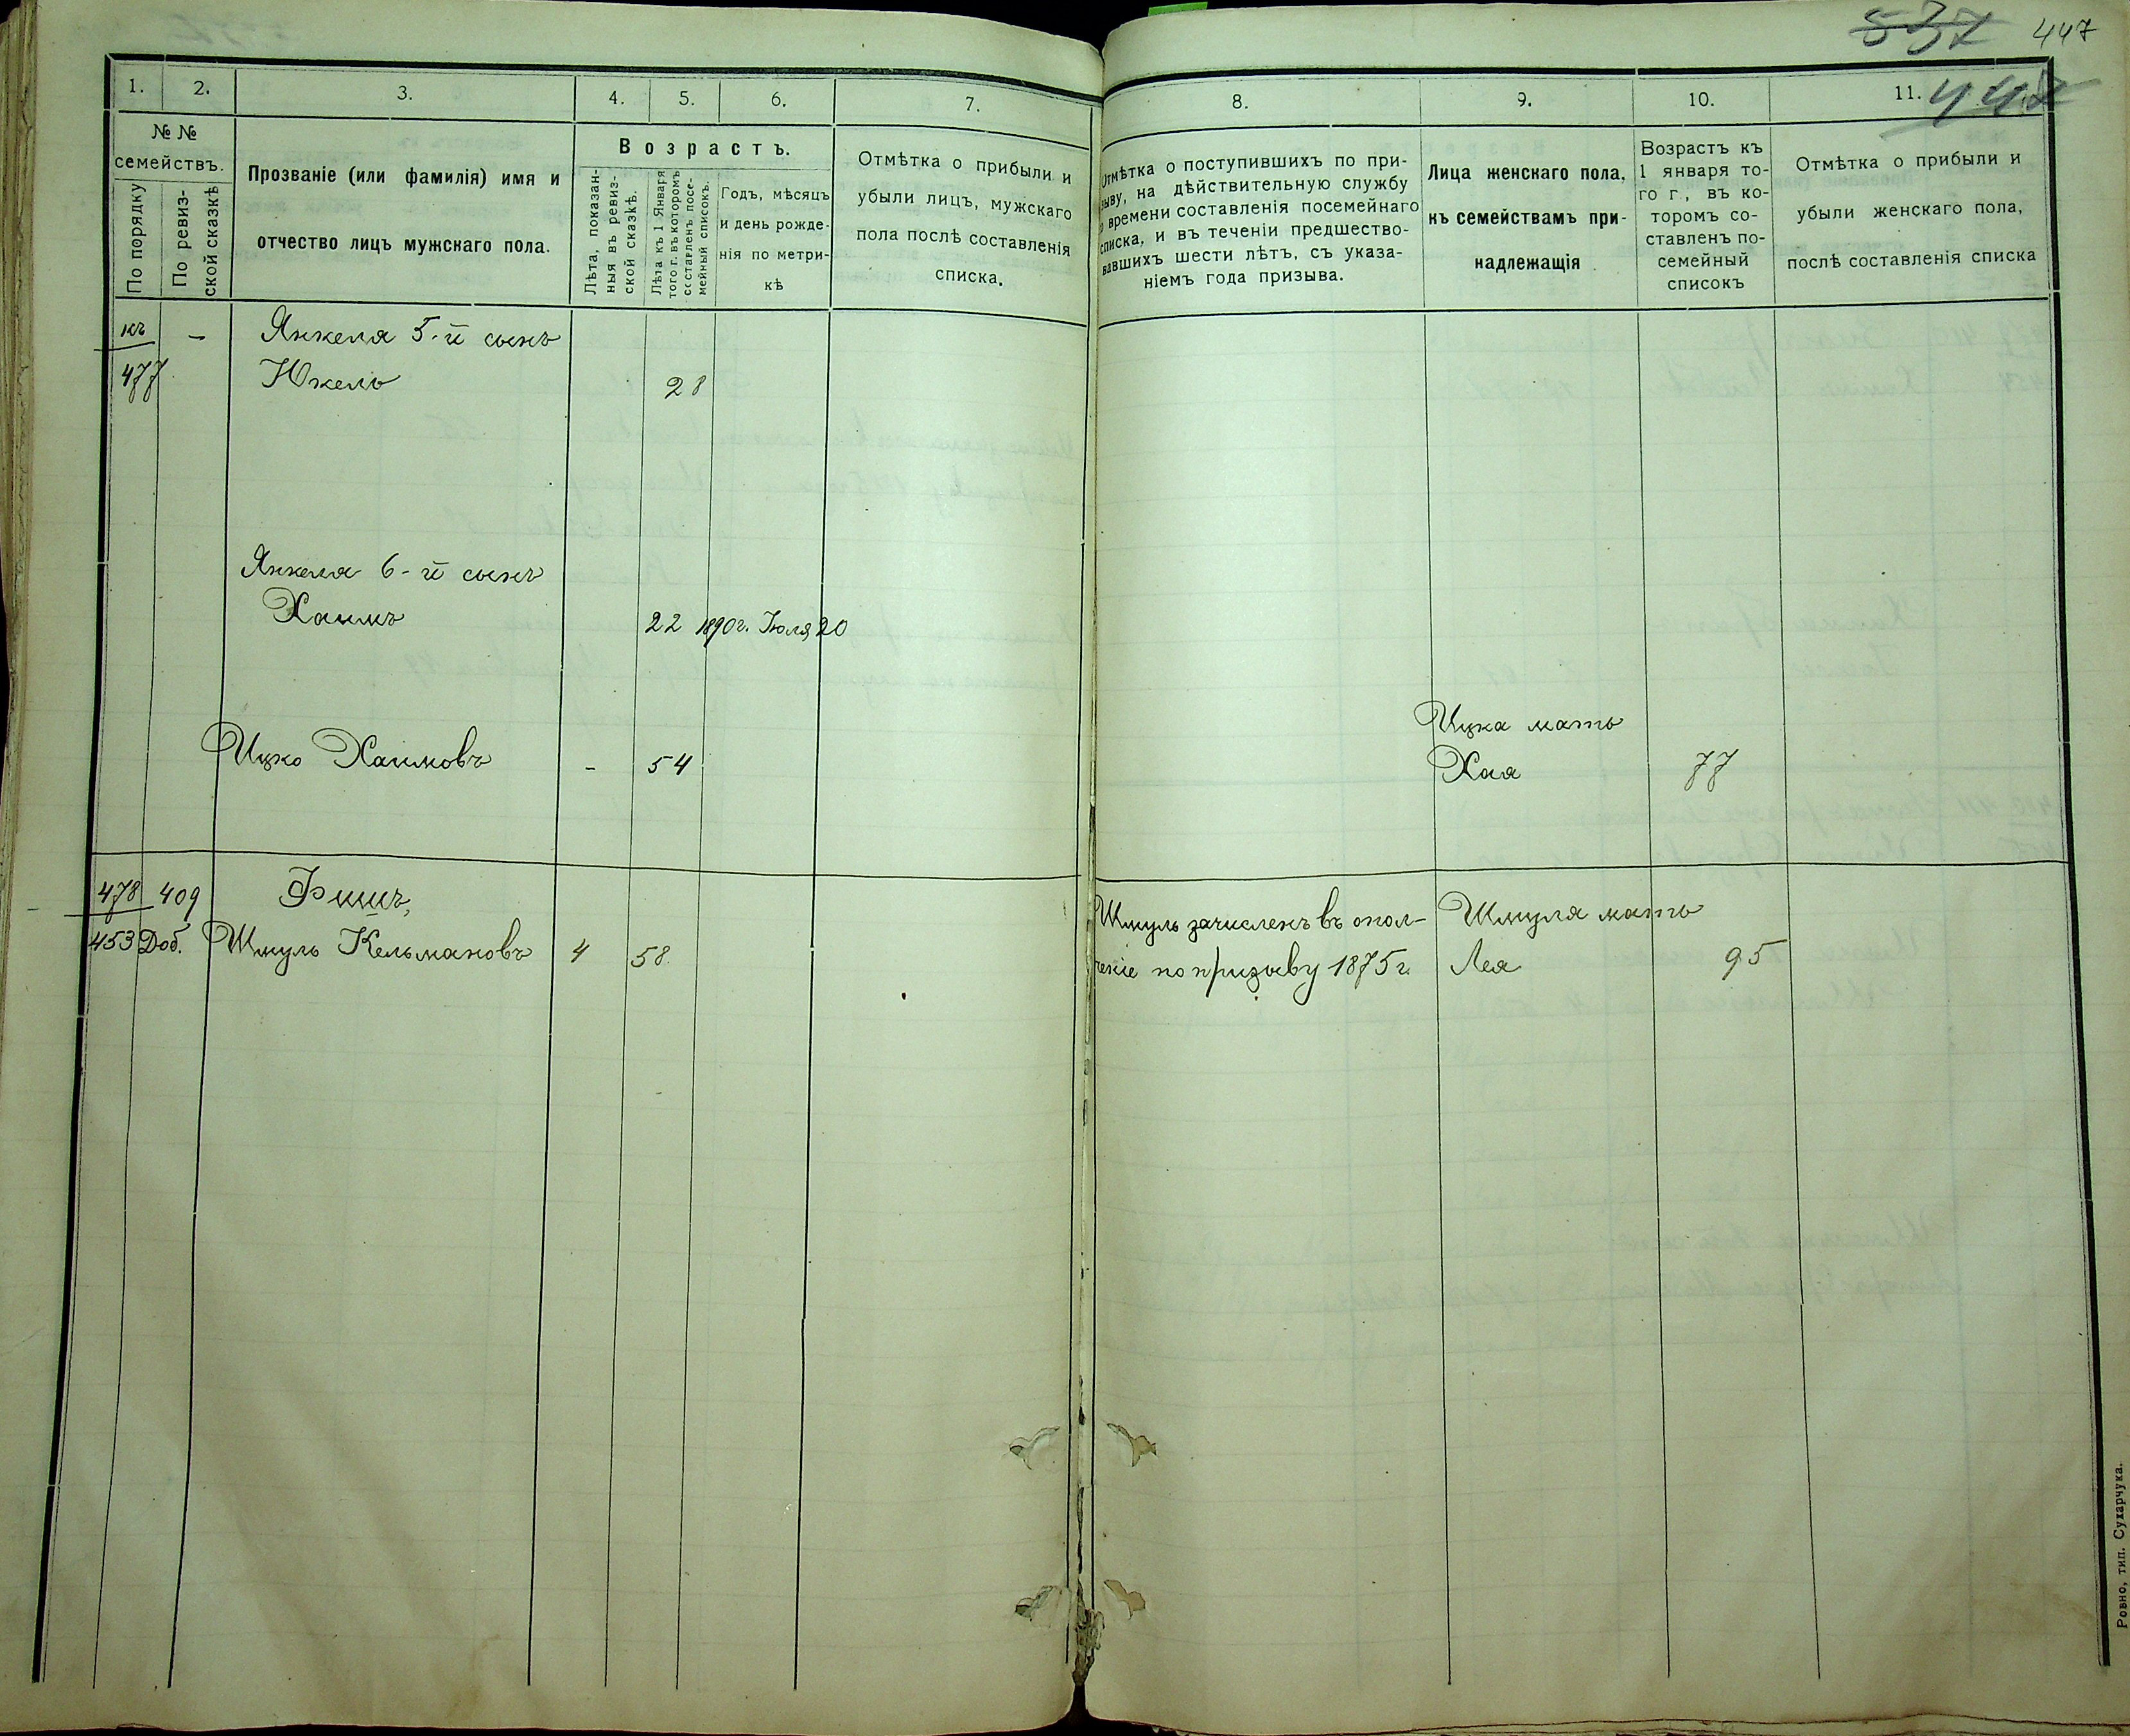 537 447
447
1. 2. 3. 4. 5. 6. 7. 8. 9. 10. 11.
№ № семействъ.
По порядку
По ревизской сказкѣ
Прозваніе (или фамилія) имя и
отчество лицъ мужскаго пола.
Возрастъ.
Лѣта, показан-
ныя въ ревиз-
ской сказкѣ.
Лѣта къ 1 Января
того г. въ которомъ
составленъ посе-
мейный списокъ.
Годъ, мѣсяцъ
и день рожде-
нія по метри-
кѣ
Отмѣтка о прибыли и
убыли лицъ, мужскаго
пола послѣ составленія
списка.
Отмѣтка о поступившихъ по при-
зыву, на дѣйствительную службу
о времени составленія посемейнаго
списка, и въ теченіи предшество-
вавшихъ шести лѣтъ, съ указа-
ніемъ года призыва.
Лица женскаго пола,
къ семействамъ при-
надлежащія
Возрастъ къ
1 января то-
го г., въ ко-
торомъ со-
ставленъ по-
семейный
списокъ
Отмѣтка о прибыли и
убыли женскаго пола,
послѣ составленія списка
къ — Янкеля 5-й сынъ
477 Юкель 28
Янкеля 6-й сынъ
Хаимъ 22 1890г. Іюля 20
Ицка мать
Ицко Хаимовъ - 54 Хая 77
478 409 Фишъ, Шмуль зачисленъ въ опол- Шмуля мать
453 Доб. Шмуль Кельмановъ 4 58. ченіе по призыву 1875 г. Лея 95
Ровно, тип. Сухарчука.